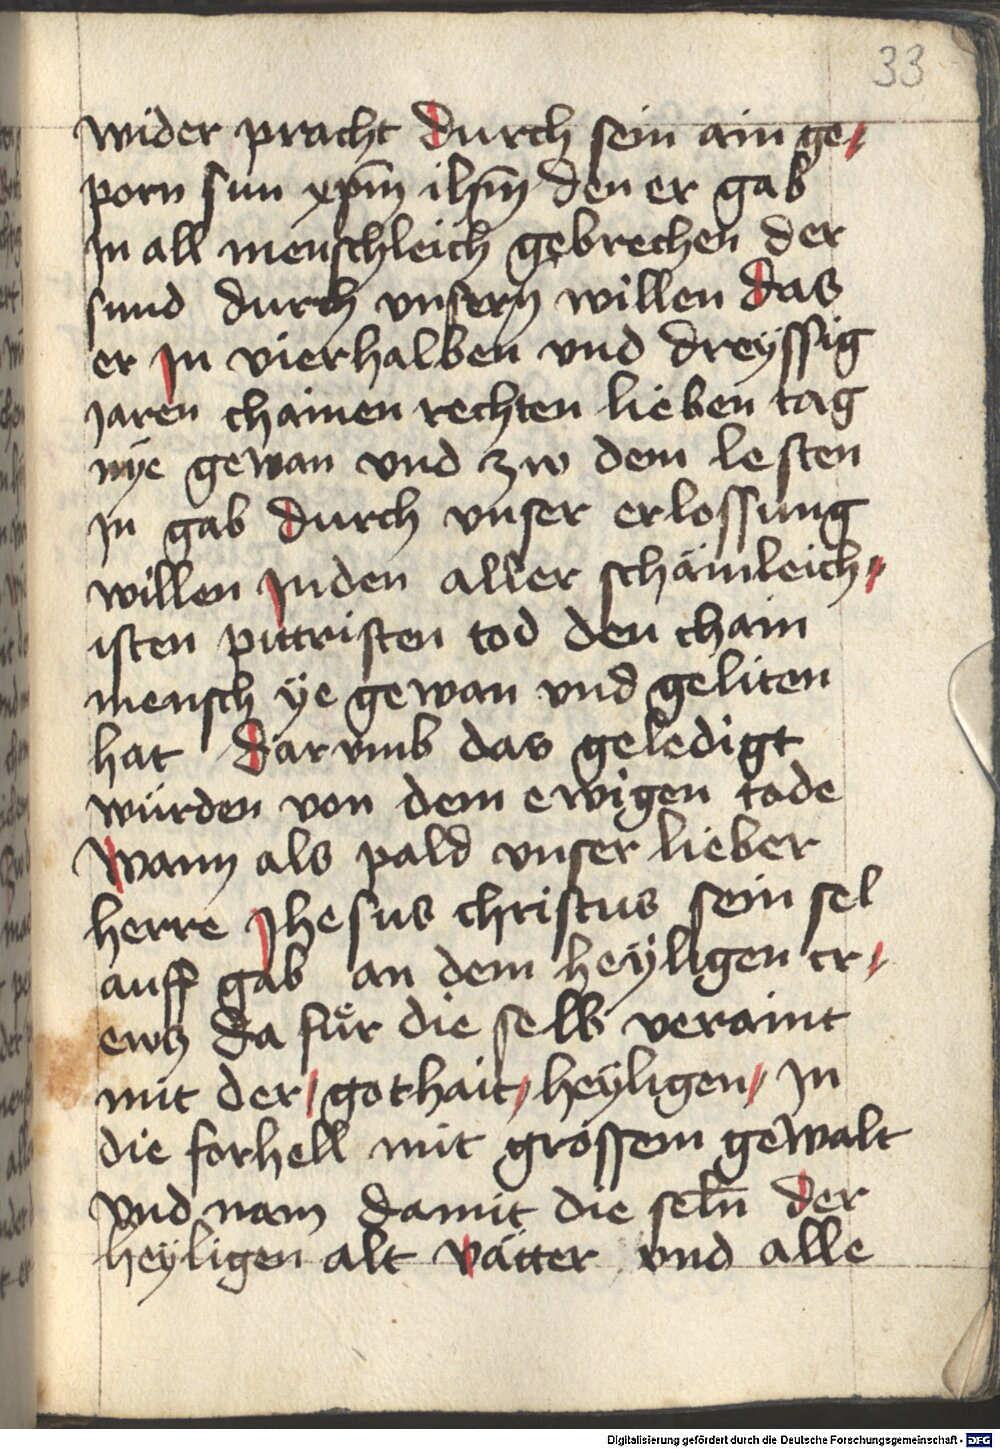 33
wider pracht durch sein ain ge/
porn sun xp̄m ih̄m den er gab
in all menschleich gebrechen der
sund durch vnsern willen das
er in vierhalben vnd dreÿssig
jaren chainen rechten lieben tag
nÿe gewan vnd zw dem lesten
in gab durch vnser erlossung
willen in den aller schämleich/
isten pittristen tod den chain
mensch ÿe gewan vnd geliten
hat darvmb das geledigt
würden von dem ewigen tode
Wann als pald vnser lieber
herre Jhesus christus sein sel
auff gab an dem heÿligen cr/
ewtz da fuͤr die selb veraint
mit der / gothait / heÿligen / in
die forhell mit grossem gewalt
vnd nam damit die seln̄ der
heÿligen alt vätter vnd alle
Digitalisierung gefördert durch die Deutsche Forschungsgemeinschaft - DFG